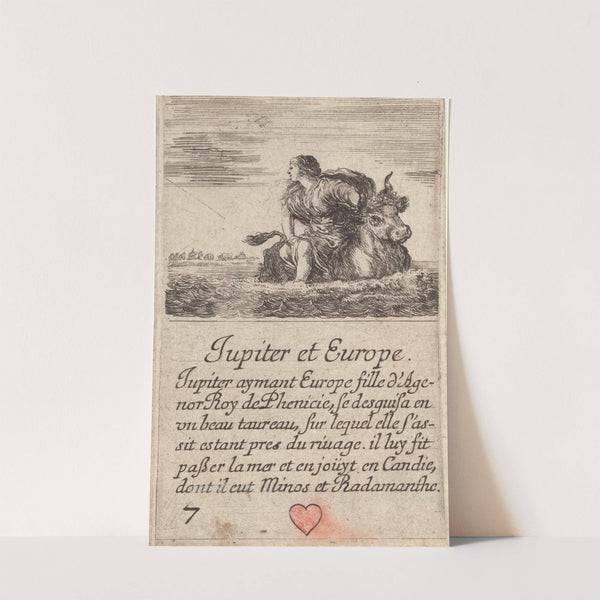 Iupiter et Europe.
Iupiter aymant Europe fille d'Age-
nor Roy de Phenicie, se desguisa en
vn beau taureau, sur lequel elle s'as-
sit estant pres du riuage. il luy fit
paßer la mer et en joüyt en Candie,
dont il eut Minos et Radamanthe.
7